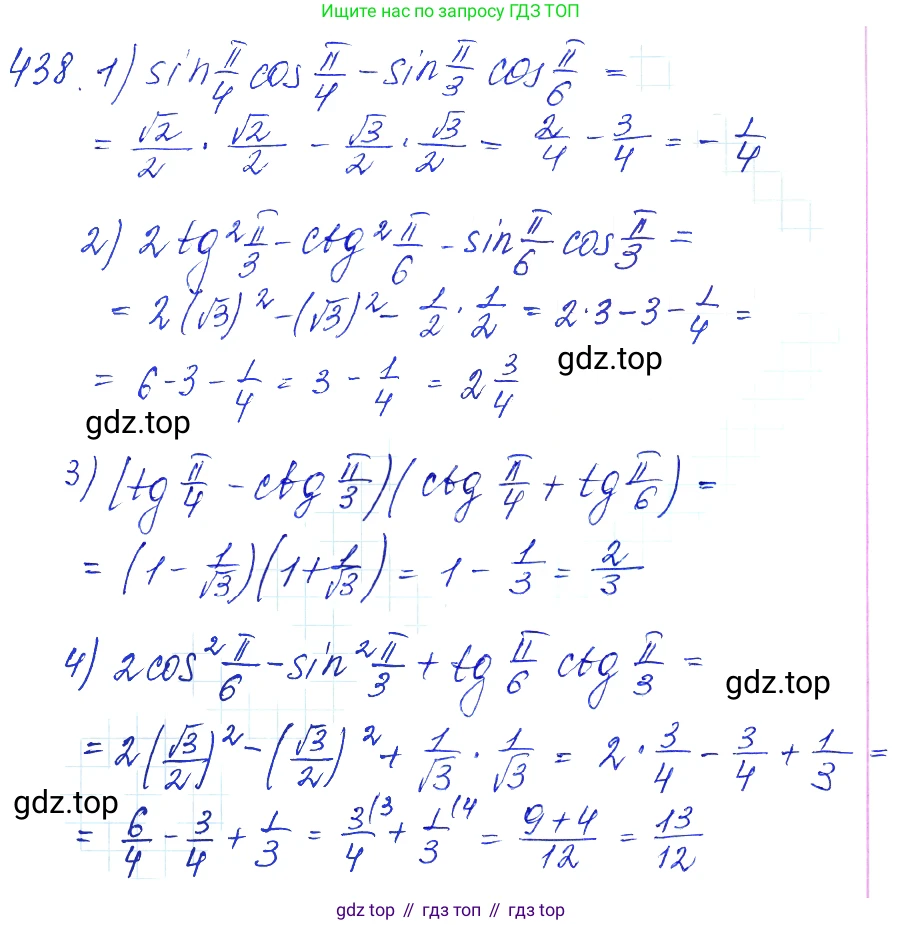 Ищите нас по запросу ГДЗ ТОП
438. 1) sin π/4 cos π/4 - sin π/3 cos π/6 =
= √2/2 · √2/2 - √3/2 · √3/2 = 2/4 - 3/4 = - 1/4
2) 2 tg² π/3 - ctg² π/6 - sin π/6 cos π/3 =
= 2 (√3)² - (√3)² - 1/2 · 1/2 = 2·3 - 3 - 1/4 =
gdz.top
= 6 - 3 - 1/4 = 3 - 1/4 = 2 3/4
gdz.top
3) (tg π/4 - ctg π/3)(ctg π/4 + tg π/6) =
= (1 - 1/√3)(1 + 1/√3) = 1 - 1/3 = 2/3
4) 2 cos² π/6 - sin² π/3 + tg π/6 ctg π/3 =
gdz.top
= 2 (√3/2)² - (√3/2)² + 1/√3 · 1/√3 = 2 · 3/4 - 3/4 + 1/3 =
gdz.top
= 6/4 - 3/4 + 1/3 = 3/4 (3 + 1/3 (4 = 9+4/12 = 13/12
gdz top // гдз топ // gdz top